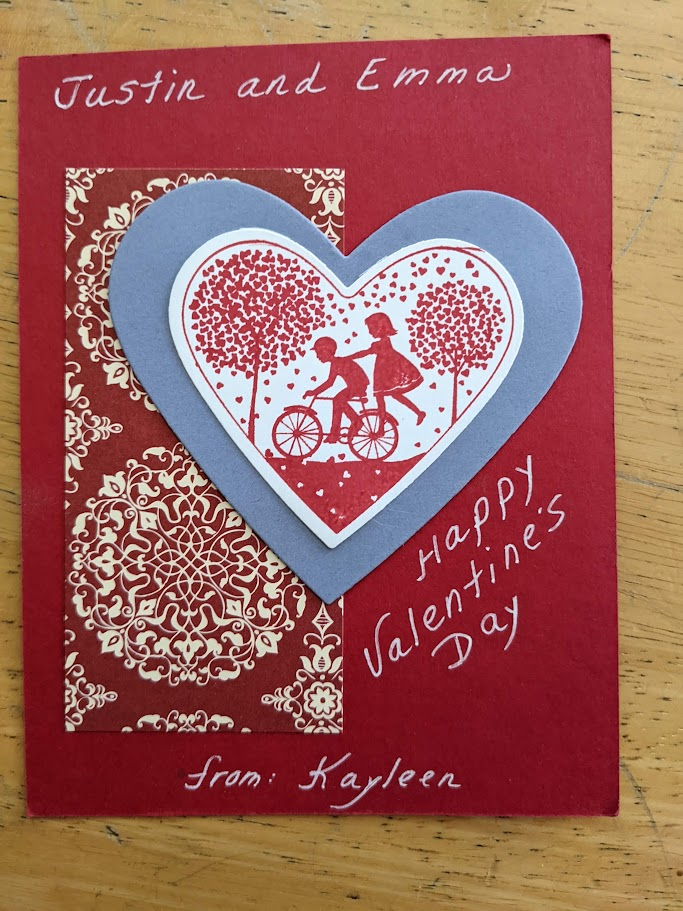 Justin and Emma
Happy
Valentine's
Day
from: Kayleen